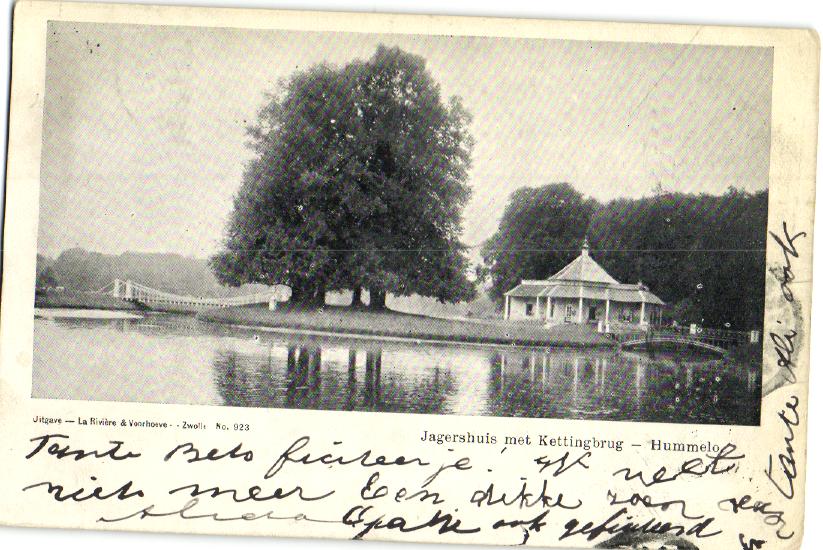 Uitgave — La Rivière & Voorhoeve - - Zwolle No. 923
Jagershuis met Kettingbrug — Hummelo
Tante Bets ficiteer je! ik weet
niets meer Een dikke zoen van
Alida Opatje ook geficiteerd
tante Ali ook